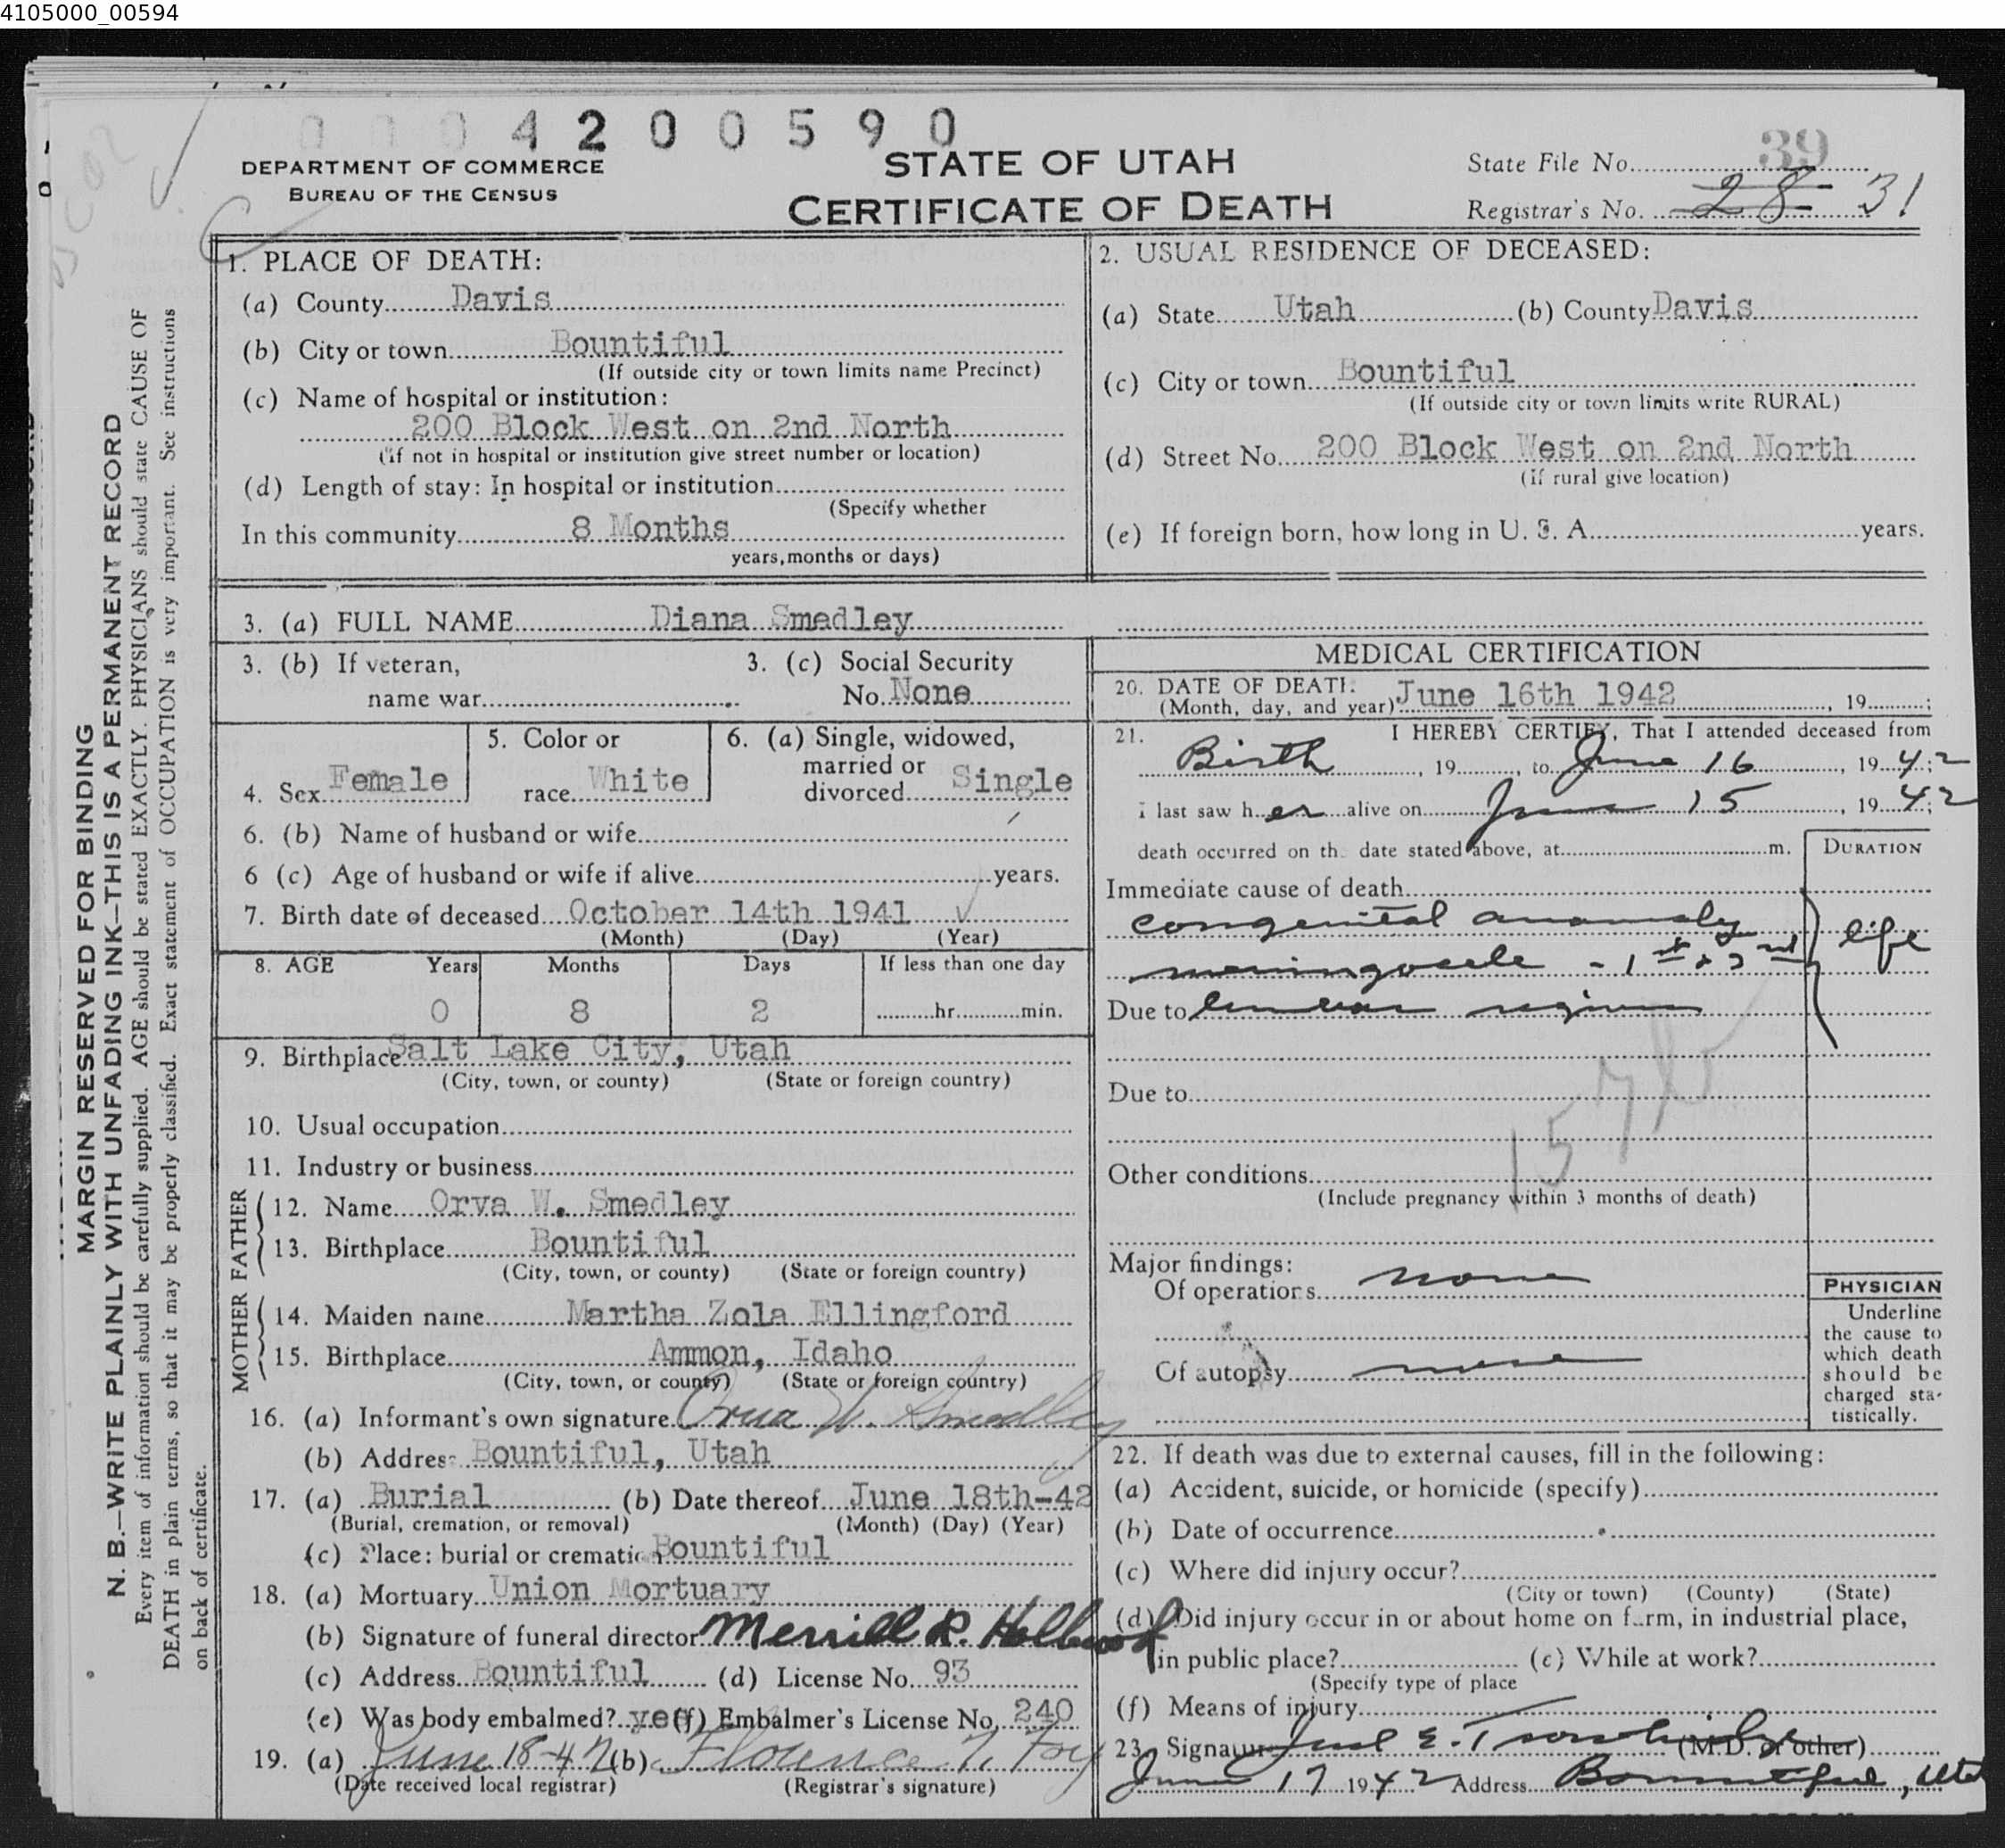 4105000_00594
0 0 0 4 2 0 0 5 9 0
DEPARTMENT OF COMMERCE
BUREAU OF THE CENSUS
STATE OF UTAH
CERTIFICATE OF DEATH
State File No. 39
Registrar's No. 28 31
MARGIN RESERVED FOR BINDING
N. B.—WRITE PLAINLY WITH UNFADING INK—THIS IS A PERMANENT RECORD
Every item of information should be carefully supplied. AGE should be stated EXACTLY. PHYSICIANS should state CAUSE OF
DEATH in plain terms, so that it may be properly classified. Exact statement of OCCUPATION is very important. See instructions
on back of certificate.
1. PLACE OF DEATH:
(a) County Davis
(b) City or town Bountiful
(If outside city or town limits name Precinct)
(c) Name of hospital or institution:
200 Block West on 2nd North
(if not in hospital or institution give street number or location)
(d) Length of stay: In hospital or institution
(Specify whether
In this community 8 Months
years, months or days)
2. USUAL RESIDENCE OF DECEASED:
(a) State Utah (b) County Davis
(c) City or town Bountiful
(If outside city or town limits write RURAL)
(d) Street No. 200 Block West on 2nd North
(if rural give location)
(e) If foreign born, how long in U. S. A. years.
3. (a) FULL NAME Diana Smedley
3. (b) If veteran,
name war
3. (c) Social Security
No. None
4. Sex Female
5. Color or
race White
6. (a) Single, widowed,
married or
divorced Single
6. (b) Name of husband or wife
6 (c) Age of husband or wife if alive years.
7. Birth date of deceased October 14th 1941
(Month) (Day) (Year)
8. AGE Years Months Days If less than one day
0 8 2 hr. min.
9. Birthplace Salt Lake City, Utah
(City, town, or county) (State or foreign country)
10. Usual occupation
11. Industry or business
FATHER
12. Name Orva W. Smedley
13. Birthplace Bountiful
(City, town, or county) (State or foreign country)
MOTHER
14. Maiden name Martha Zola Ellingford
15. Birthplace Ammon, Idaho
(City, town, or county) (State or foreign country)
16. (a) Informant's own signature Orva W. Smedley
(b) Address Bountiful, Utah
17. (a) Burial (b) Date thereof June 18th-42
(Burial, cremation, or removal) (Month) (Day) (Year)
(c) Place: burial or cremation Bountiful
18. (a) Mortuary Union Mortuary
(b) Signature of funeral director Merrill R. Holbrook
(c) Address Bountiful (d) License No. 93
(e) Was body embalmed? yes (f) Embalmer's License No. 240
19. (a) June 18-42 (b) Florence T. Foy
(Date received local registrar) (Registrar's signature)
MEDICAL CERTIFICATION
20. DATE OF DEATH:
(Month, day, and year) June 16th 1942, 19 ;
21. I HEREBY CERTIFY, That I attended deceased from
Birth, 19 , to June 16, 1942
I last saw her alive on June 15, 1942;
death occurred on the date stated above, at m.
DURATION
Immediate cause of death
congenital anomaly
meningocele - 1st & 2nd
life
Due to lumbar region
Due to
157b
Other conditions
(Include pregnancy within 3 months of death)
Major findings:
Of operations none
Of autopsy none
PHYSICIAN
Underline
the cause to
which death
should be
charged sta-
tistically.
22. If death was due to external causes, fill in the following:
(a) Accident, suicide, or homicide (specify)
(b) Date of occurrence
(c) Where did injury occur?
(City or town) (County) (State)
(d) Did injury occur in or about home on farm, in industrial place,
in public place? (e) While at work?
(Specify type of place
(f) Means of injury
23. Signature E. Trowbridge (M.D. or other)
June 17 1942 Address Bountiful, Utah